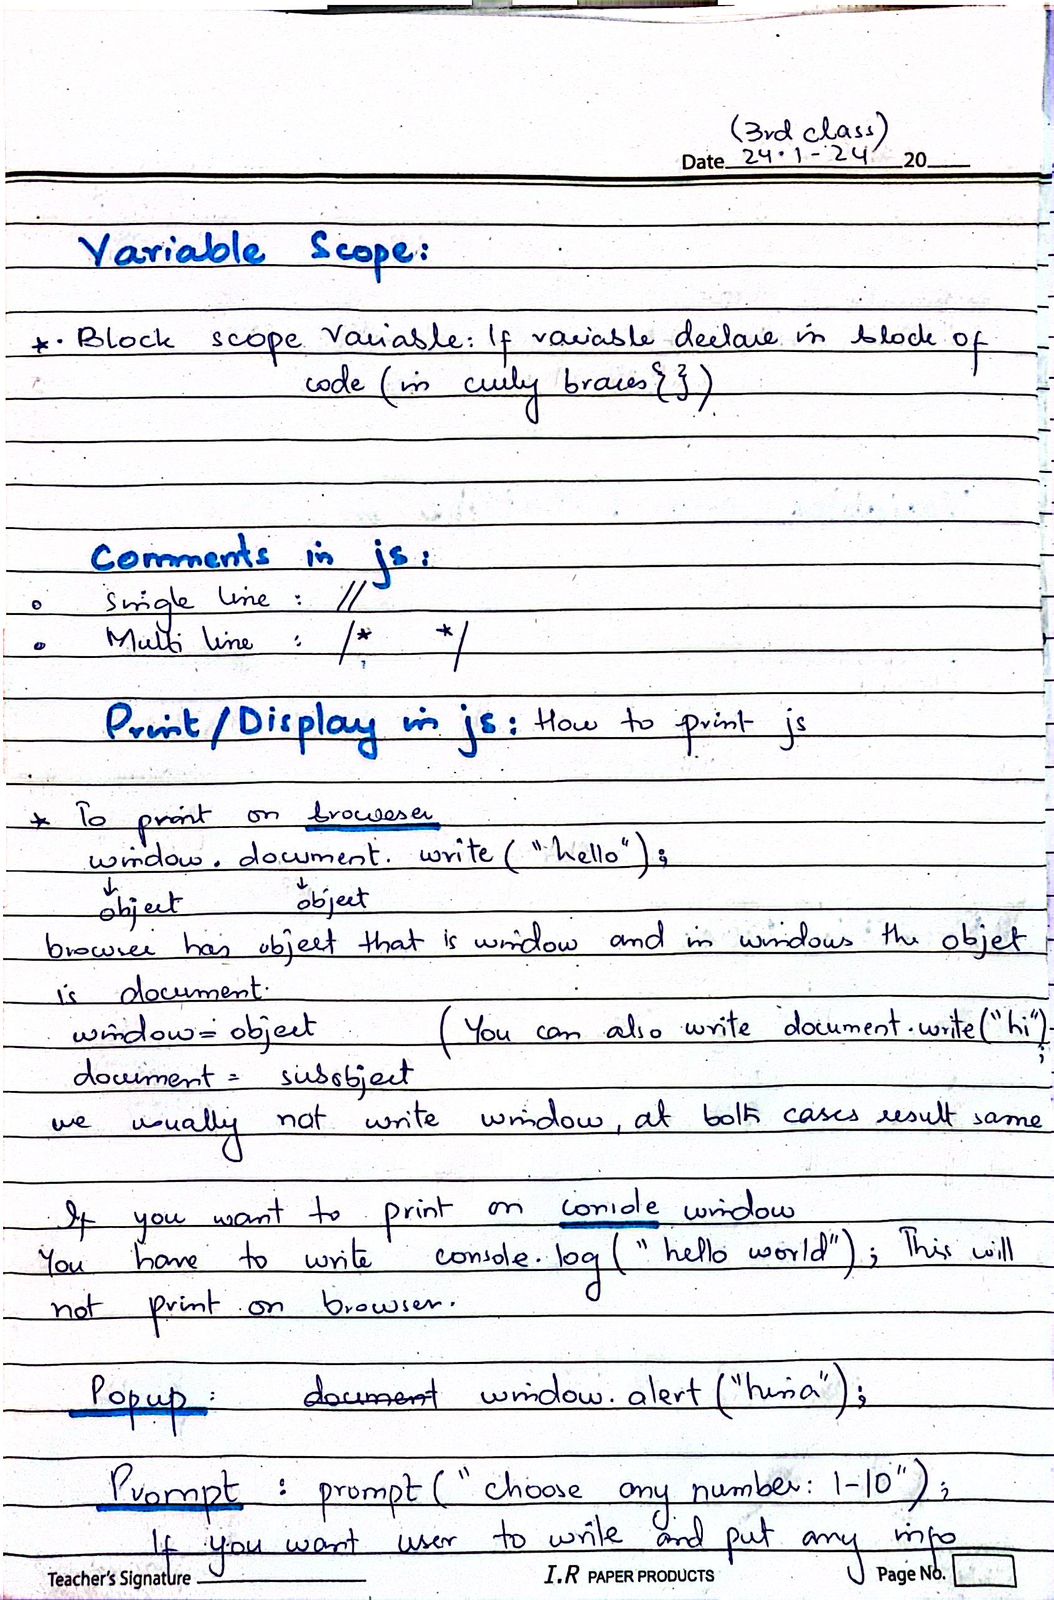 (3rd class)
Date 24·1-24 20
Variable Scope:
*· Block scope Variable: If variable declare in block of
code (in curly braces {})
Comments in js:
Single line : //
Multi line : /* */
Print/Display in js: How to print js
* To print on broweser
window. document. write ("hello");
↓ ↓
object object
browser has object that is window and in windows the objet
is document.
window = object (You can also write document.write("hi");
document = subobject
we usually not write window, at both cases result same
If you want to print on console window
You have to write console.log("hello world"); This will
not print on browser.
Popup: document window.alert ("hina");
Prompt : prompt("choose any number: 1-10");
If you want user to write and put any info
Teacher's Signature I.R PAPER PRODUCTS Page No.